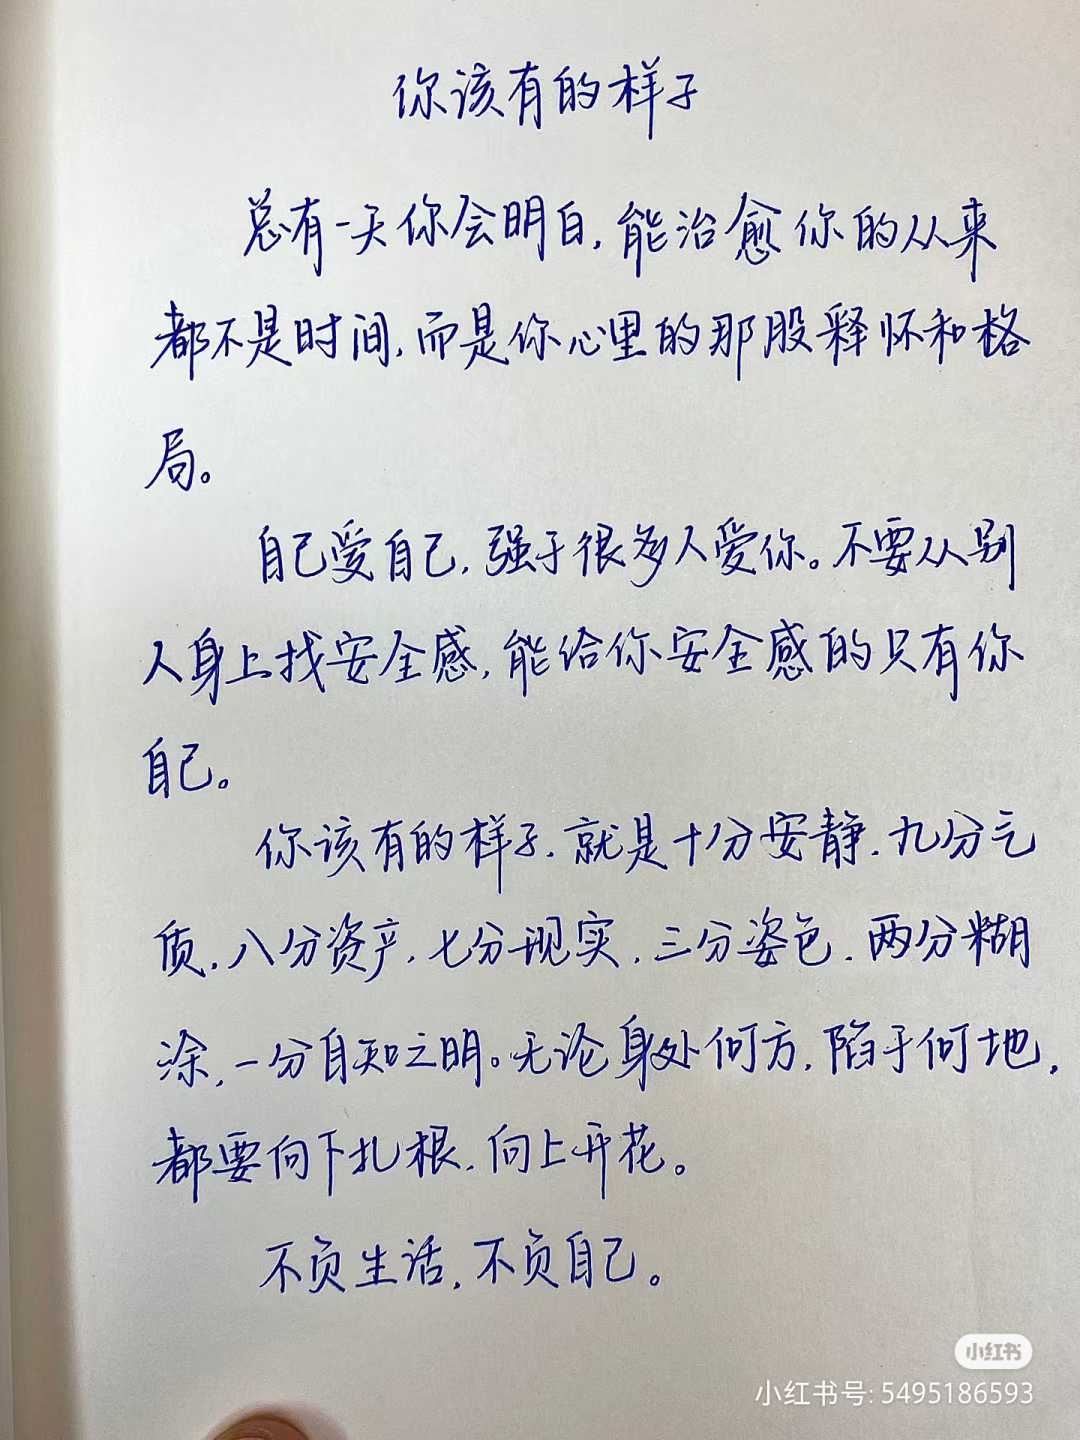 你该有的样子
总有一天你会明白,能治愈你的从来
都不是时间,而是你心里的那股释怀和格
局。
自己爱自己,强于很多人爱你。不要从别
人身上找安全感,能给你安全感的只有你
自己。
你该有的样子,就是十分安静,九分气
质,八分资产,七分现实,三分姿色,两分糊
涂,一分自知之明。无论身处何方,陷于何地,
都要向下扎根,向上开花。
不负生活,不负自己。
小红书
小红书号: 5495186593